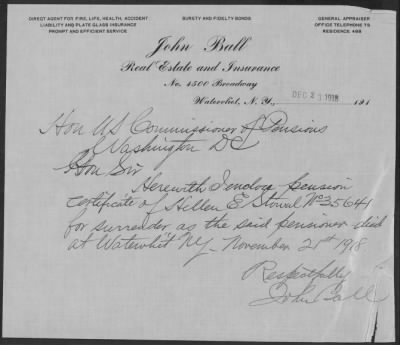 DIRECT AGENT FOR FIRE, LIFE, HEALTH, ACCIDENT
LIABILITY AND PLATE GLASS INSURANCE
PROMPT AND EFFICIENT SERVICE
SURETY AND FIDELITY BONDS
GENERAL APPRAISER
OFFICE TELEPHONE 75
RESIDENCE 498
John Ball
Real Estate and Insurance
No. 1500 Broadway
Watervliet, N. Y., DEC 1918 191
Hon US Commissioner of Pensions
Washington DC
Hon Sir
Herewith Inclose pension
certificate of Hellen E Stowel No 35641
for surrender as the said pensioner died
at Watervliet NY November 21st 1918
Respectfully
John Ball